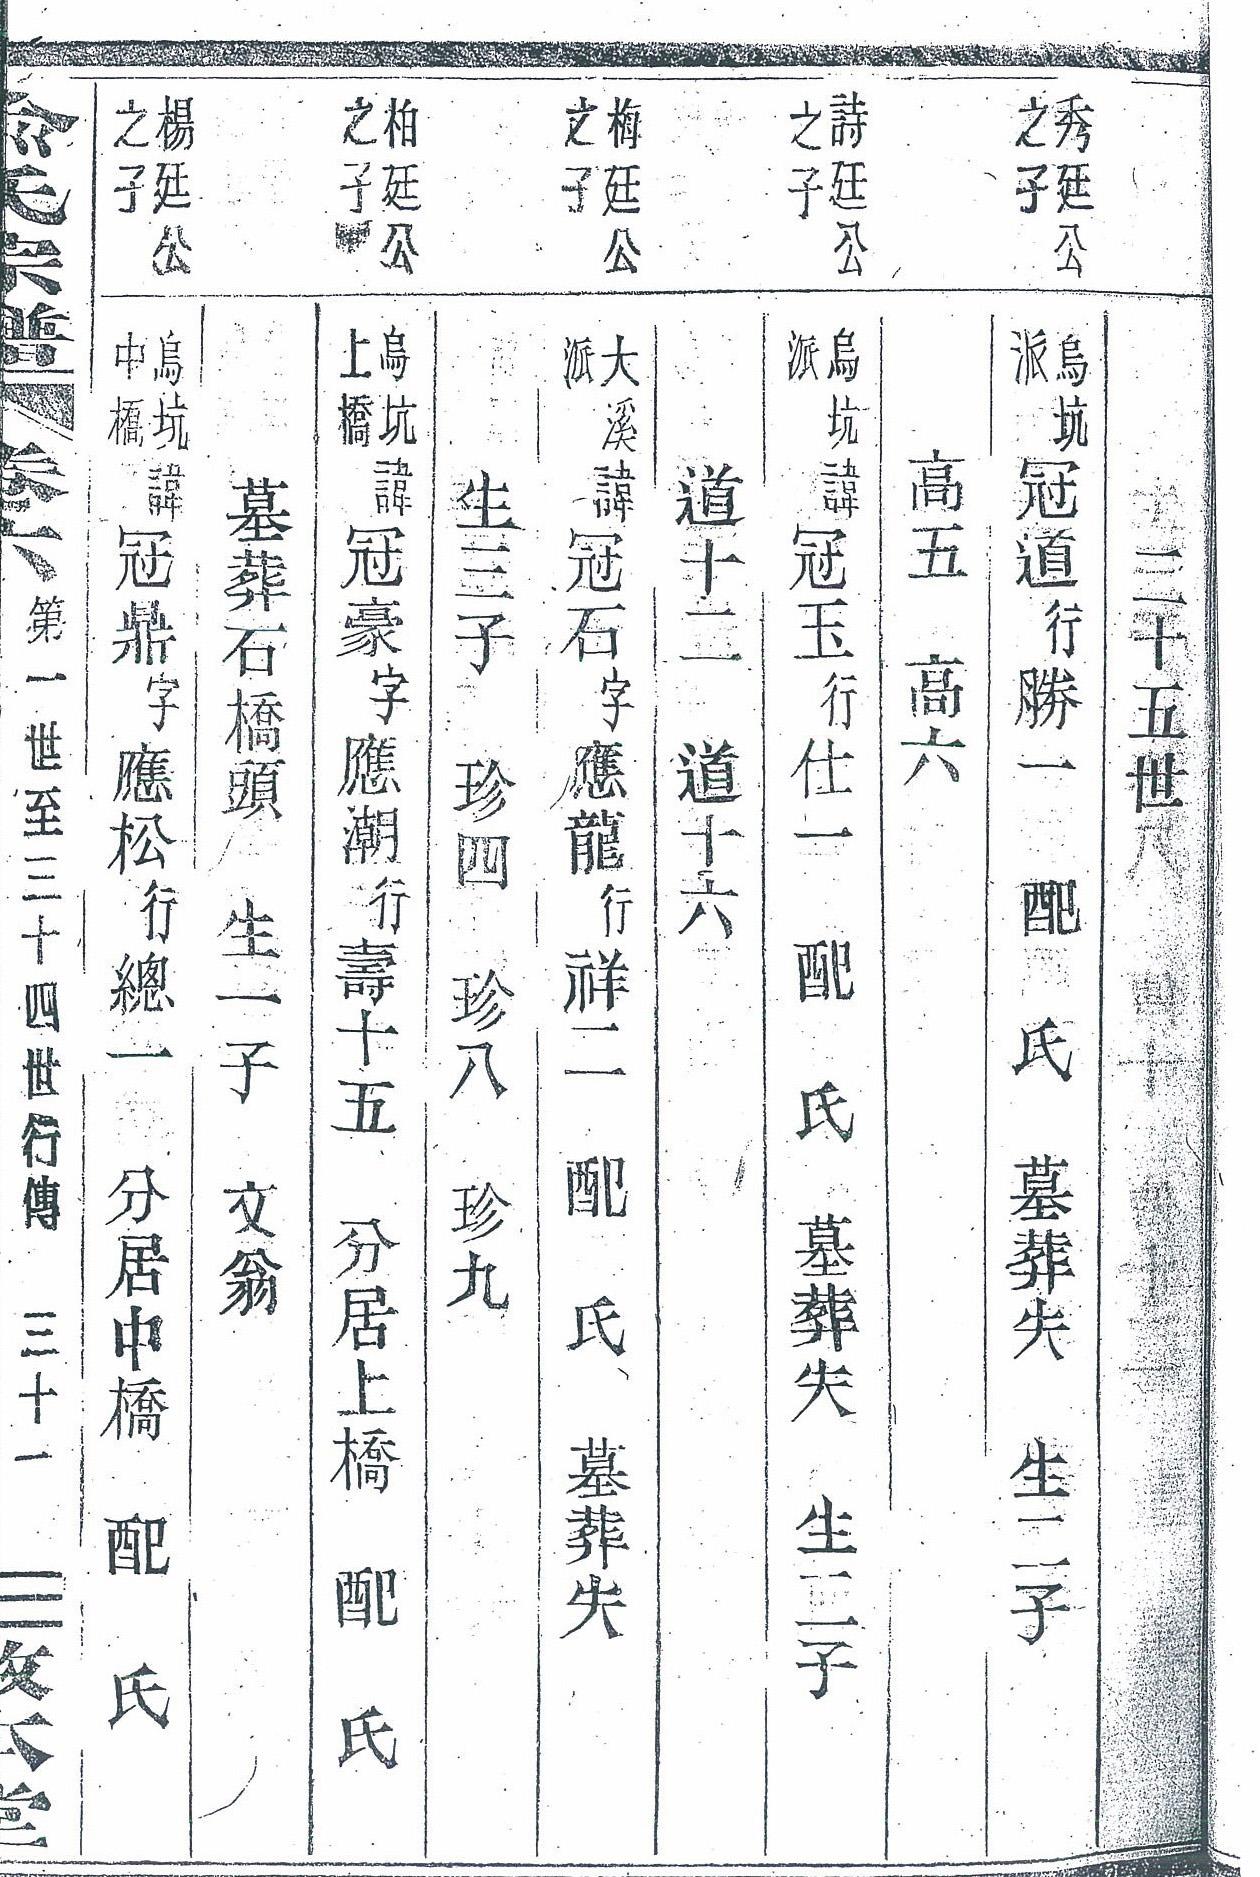 三十五世
秀廷公
之子
烏坑
派
冠道行勝一 配 氏 墓葬失 生二子
高五 高六
詩廷公
之子
烏坑
派
諱冠玉行仕一 配 氏 墓葬失 生二子
道十二 道十六
梅廷公
之子
大溪
派
諱冠石字應龍行祥二 配 氏 墓葬失
生三子 珍四 珍八 珍九
柏廷公
之子
烏坑
上橋
諱冠豪字應潮行壽十五 分居上橋 配 氏
墓葬石橋頭 生一子 文翁
楊廷公
之子
烏坑
中橋
諱冠鼎字應松行總一 分居中橋 配 氏
氏宗譜 卷六 第一世至三十四世行傳 三十一 堂